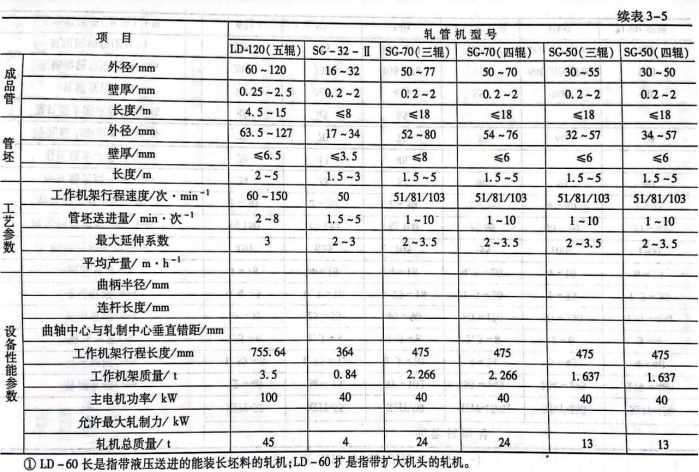 续表3-5
项 目 轧管机型号
LD-120(五辊) SG-32-Ⅱ SG-70(三辊) SG-70(四辊) SG-50(三辊) SG-50(四辊)
成品管 外径/mm 60~120 16~32 50~77 50~70 30~55 30~50
壁厚/mm 0.25~2.5 0.2~2 0.2~2 0.2~2 0.2~2 0.2~2
长度/m 4.5~15 ≤8 ≤18 ≤18 ≤18 ≤18
管坯 外径/mm 63.5~127 17~34 52~80 54~76 32~57 34~57
壁厚/mm ≤6.5 ≤3.5 ≤8 ≤6 ≤6 ≤6
长度/m 2~5 1.5~3 1.5~5 1.5~5 1.5~5 1.5~5
工艺参数 工作机架行程速度/次·min⁻¹ 60~150 50 51/81/103 51/81/103 51/81/103 51/81/103
管坯送进量/min·次⁻¹ 2~8 1.5~5 1~10 1~10 1~10 1~10
最大延伸系数 3 2~3 2~3.5 2~3.5 2~3.5 2~3.5
平均产量/m·h⁻¹
设备性能参数 曲柄半径/mm
连杆长度/mm
曲轴中心与轧制中心垂直错距/mm
工作机架行程长度/mm 755.64 364 475 475 475 475
工作机架质量/t 3.5 0.84 2.266 2.266 1.637 1.637
主电机功率/kW 100 40 40 40 40 40
允许最大轧制力/kW
轧机总质量/t 45 4 24 24 13 13
① LD-60长是指带液压送进的能装长坯料的轧机;LD-60扩是指带扩大机头的轧机。